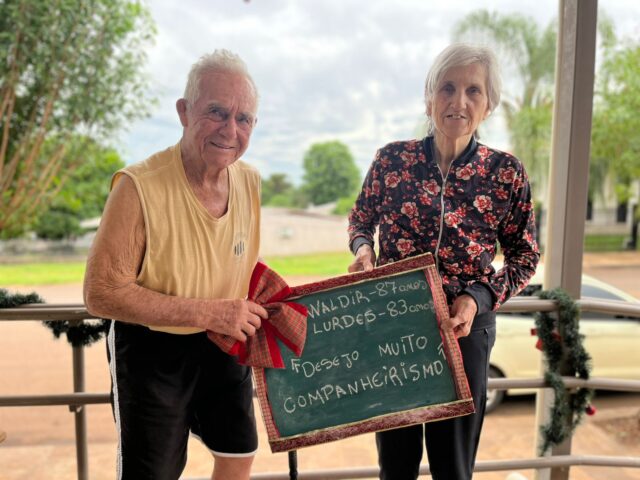 WALDIR-87 anos
LURDES-83 anos
"DESEJO MUITO
COMPANHEIRISMO"